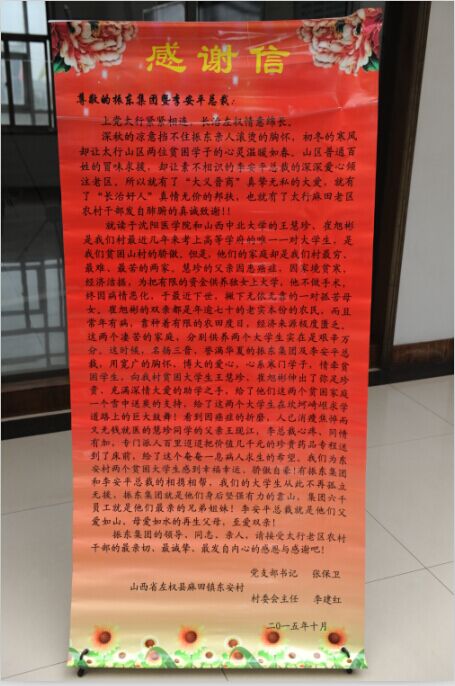 感谢信
尊敬的振东集团暨李安平总裁：
上党太行紧紧相连，长治左权情意绵长。
深秋的凉意挡不住振东亲人滚烫的胸怀，初冬的寒风
却让太行山区两位贫困学子的心灵温暖如春。山区普通百
姓的冒昧求援，却让素不相识的李安平总裁的深深爱心倾
注老区。所以就有了“大义晋商”真挚无私的大爱，就有
了“长治好人”真情无价的帮扶，也就有了太行麻田老区
农村干部发自肺腑的真诚致谢！！
就读于沈阳医学院和山西中北大学的王慧珍、崔旭彬
是我们村最近几年来考上高等学府的唯一一对大学生，是
我们贫困山村的骄傲。但是，他们的家庭却是我们村最穷、
最难、最苦的两家。慧珍的父亲因患癌症，因家境贫寒，
经济拮据，为把有限的资金供养独女上大学，他不做手术，
终因病情恶化，于最近下世，撇下无依无靠的一对孤苦母
女。崔旭彬的双亲都是年逾七十的老实本份的农民，而且
常年有病，靠种着有限的农田度日，经济来源极度匮乏。
这两个凄苦的家庭，分别供养两个大学生实在是艰辛万
分。这时候，名扬三晋、誉满华夏的振东集团及李安平总
裁，用宽广的胸怀，博大的爱心，心系寒门学子，情牵贫
困学生，向我村贫困大学生王慧珍、崔旭彬伸出了弥足珍
贵，充满深情大爱的助学之手，给了他们这两个贫困家庭
一个雪中送炭的支持，给了这两个大学生在坎坷崎岖求学
道路上的巨大鼓舞！看到因癌症的折磨，人已消瘦焦悴而
又无钱就医的慧珍同学的父亲王现江，李总裁心疼，同情
有加，专门派人百里迢迢把价值几千元的珍贵药品专程送
到了床前，给了这个奄奄一息病人求生的希望。我们为东
安村两个贫困大学生感到幸福幸运，骄傲自豪！有振东集团
和李安平总裁的相携相帮，我们的大学生从此不再孤立
无援，振东集团就是他们身后坚强有力的靠山，集团六千
员工就是他们最亲的兄弟姐妹！李安平总裁就是他们父
爱如山、母爱如水的再生父母，至爱双亲！
振东集团的领导、同志、亲人，请接受太行老区农村
干部的最亲切、最诚挚、最发自内心的感恩与感谢吧！
党支部书记 张保卫
山西省左权县麻田镇东安村
村委会主任 李建红
二〇一五年十月